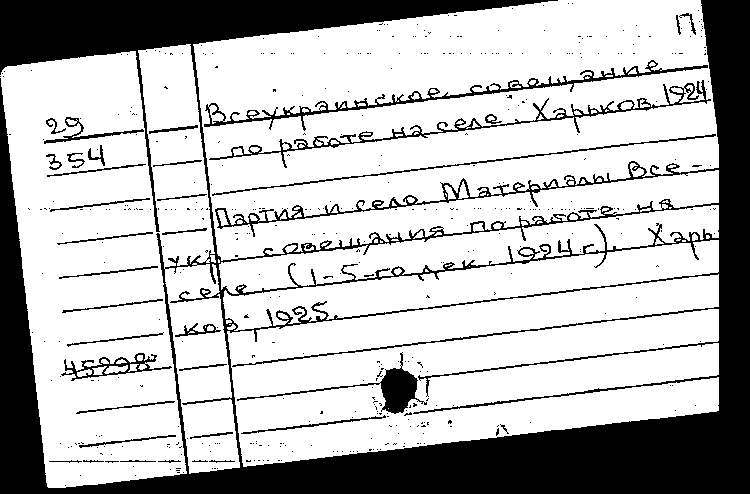 П
29
354
Всеукраинское совещание
по работе на селе. Харьков. 1924
Партия и село. Материалы Все-
укр. совещания по работе на
селе. (1-5-го дек. 1924 г.). Харь
ков, 1925.